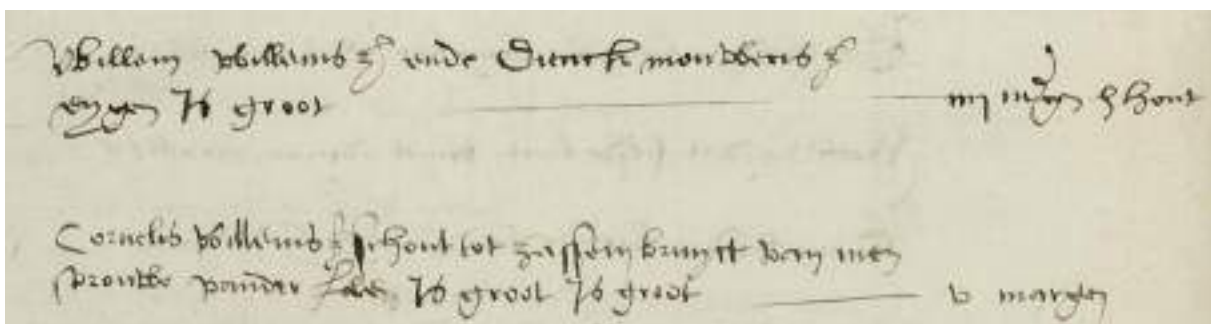 Willem Willems z ende Dirck mouweris z
eygen Is groot iiij m̃gen j hont
Cornelis Willems z schout tot zassem bruyct van men
vrouwe vander Lee Is groot Is groot v margen